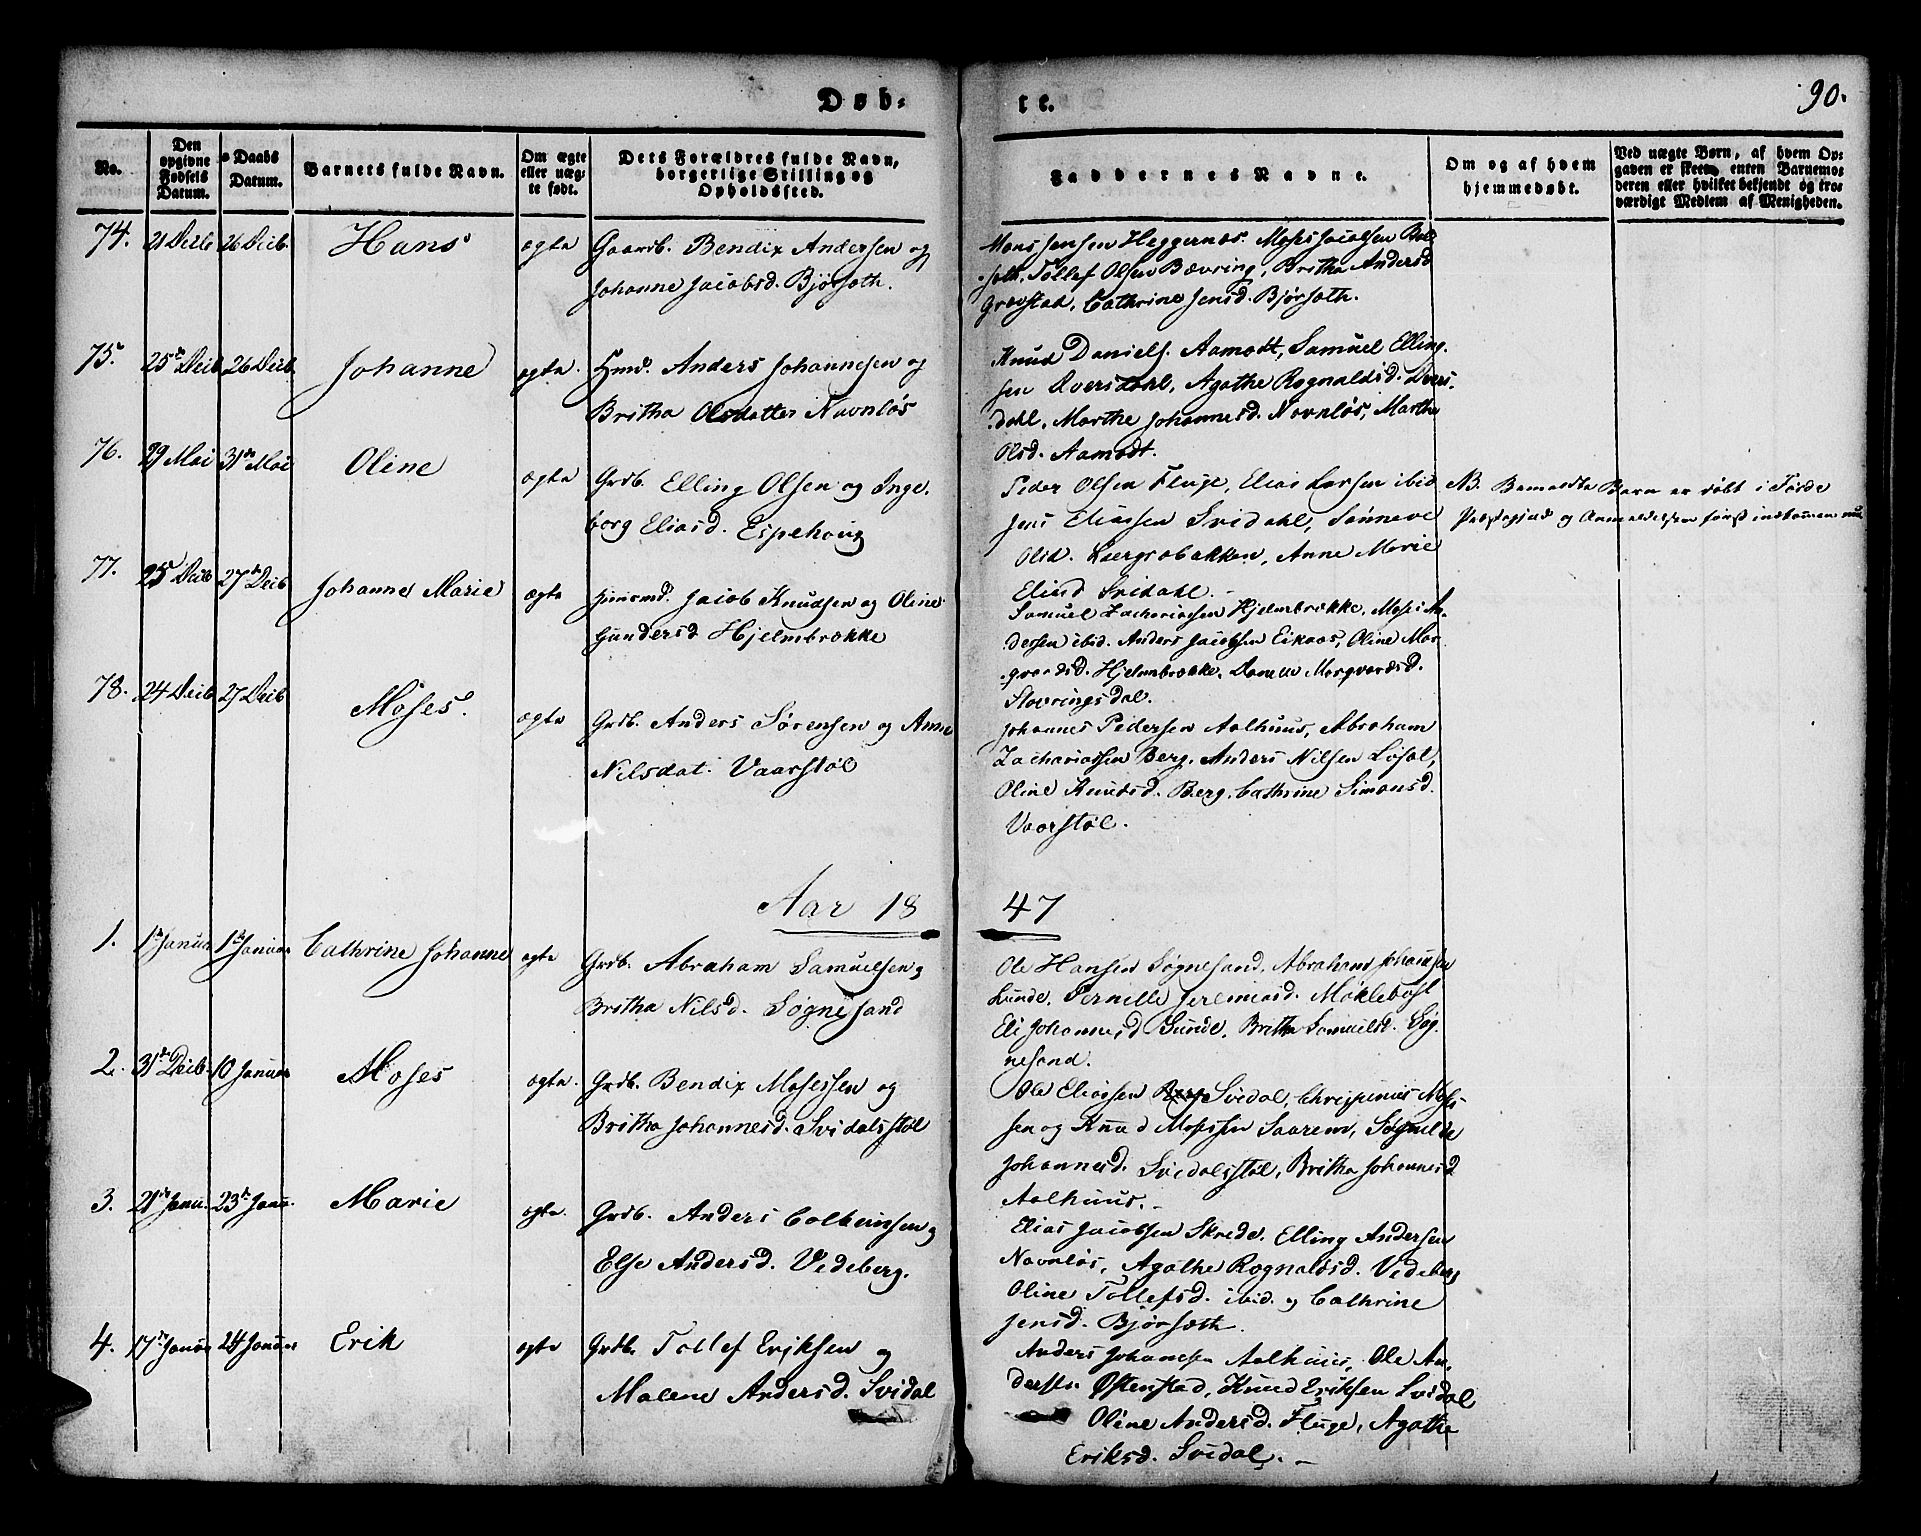 Døb-
te.
90.
No.
Den opgivne Fødsels Datum.
Daabs Datum.
Barnets fulde Navn.
Om ægte eller uægte født.
Dets Forældres fulde Navn, borgerlige Stilling og Opholdssted.
Faddernes Navne.
Om og af hvem hjemmedøbt.
Ved uægte Børn, af hvem Opgaven er skeet, enten Barnemoderen eller hvilket bekjendt og troværdigt Medlem af Menigheden.
74. 21 Decb 26 Decb. Hans ægte Gaardb. Bendix Andersen og
Johanne Jacobsd. Bjørsæth.
Mons Jensen Heggernæs. Moses Jacobsen
Tollef Olsen Bævring, Britha Andersd
Grovstad, Cathrine Jensd. Bjørsæth.
75. 25de Decb 26 Decb Johanne ægte. Hmd. Anders Johannesen og
Britha Olsdatter Navnløs
Knud Daniels. Aamodt, Samuel Elling-
sen Dversdahl, Agathe Rognaldsd. Dvers-
dahl, Marthe Johannesd. Navnløs, Marthe
Olsd. Aamodt.
76. 29 Mai 31te Mai Oline ægte Grdb. Elling Olsen og Inge-
borg Eliasd. Espehoug
Peder Olsen Fluge, Elias Larsen ibid
Jens Eliassen Svidahl, Sønneve
Olsd. Bakken, Anne Marie
Eliasd Svidahl.
NB. Bemældte Barn er døbt i Førde
Præstegjæld og Anmeldelsen først indkommen nu
77. 25de Decb 27de Decb Johanne Marie ægte Huusmd. Jacob Knudsen og Oline
Gundersd Hjelmbrekke
Samuel Zachariassen Hjelmbrekke, Moses An-
dersen ibid. Anders Jacobsen Eikaas, Oline Mar-
gvardsd. Hjelmbrekke, Margvardsd.
Stavringsdal.
78. 24 Decb 27 Decb Moses. ægte Grdb. Anders Sørensen og Anne
Nilsdat. Vaarstøl
Johannes Pedersen Aalhuus, Abraham
Zachariassen Berg, Anders Nilsen Løsæt,
Oline Knudsd. Berg, Cathrine Simonsd.
Vaarstøl.
Aar 18 47
1. 1te Januar 1te Januar Cathrine Johanne ægte Grdb. Abraham Samuelsen og
Britha Nilsd. Søgnesand
Ole Hansen Søgnesand, Abraham Johannesen
Sunde, Pernille Jeremiasd. Myklebost
Eli Johannesd Sunde, Britha Samuelsd. Søg-
nesand.
2. 31te Decb. 10 Januar Moses ægte. Grdb. Bendix Mosessen og
Britha Johannesd. Svidalsstøl
Ole Eliassen Svidal, Moses-
sen og Knud Mosessen Saarem, Søgnilde
Johannesd. Svidalsstøl, Britha Johannesd
Aalhuus.
3. 21de Janu. 23de Janu. Marie ægte. Grdb. Anders Colbeinsen og
Else Andersd. Vedeberg.
Elias Jacobsen Skrede, Elling Andersen
Navnløs, Agathe Rognaldsd. Vedeberg
Oline Tollefsd. ibid. og Cathrine
Jensd. Bjørsæth.
4. 17de Januar 24 Januar Erik ægte Grdb. Tollef Eriksen og
Malene Andersd. Svidal
Anders Johannesen Aalhuus, Ole An-
dersen Østenstad, Knud Eriksen Svidal
Oline Andersd. Fluge, Agathe
Eriksd. Svidal.